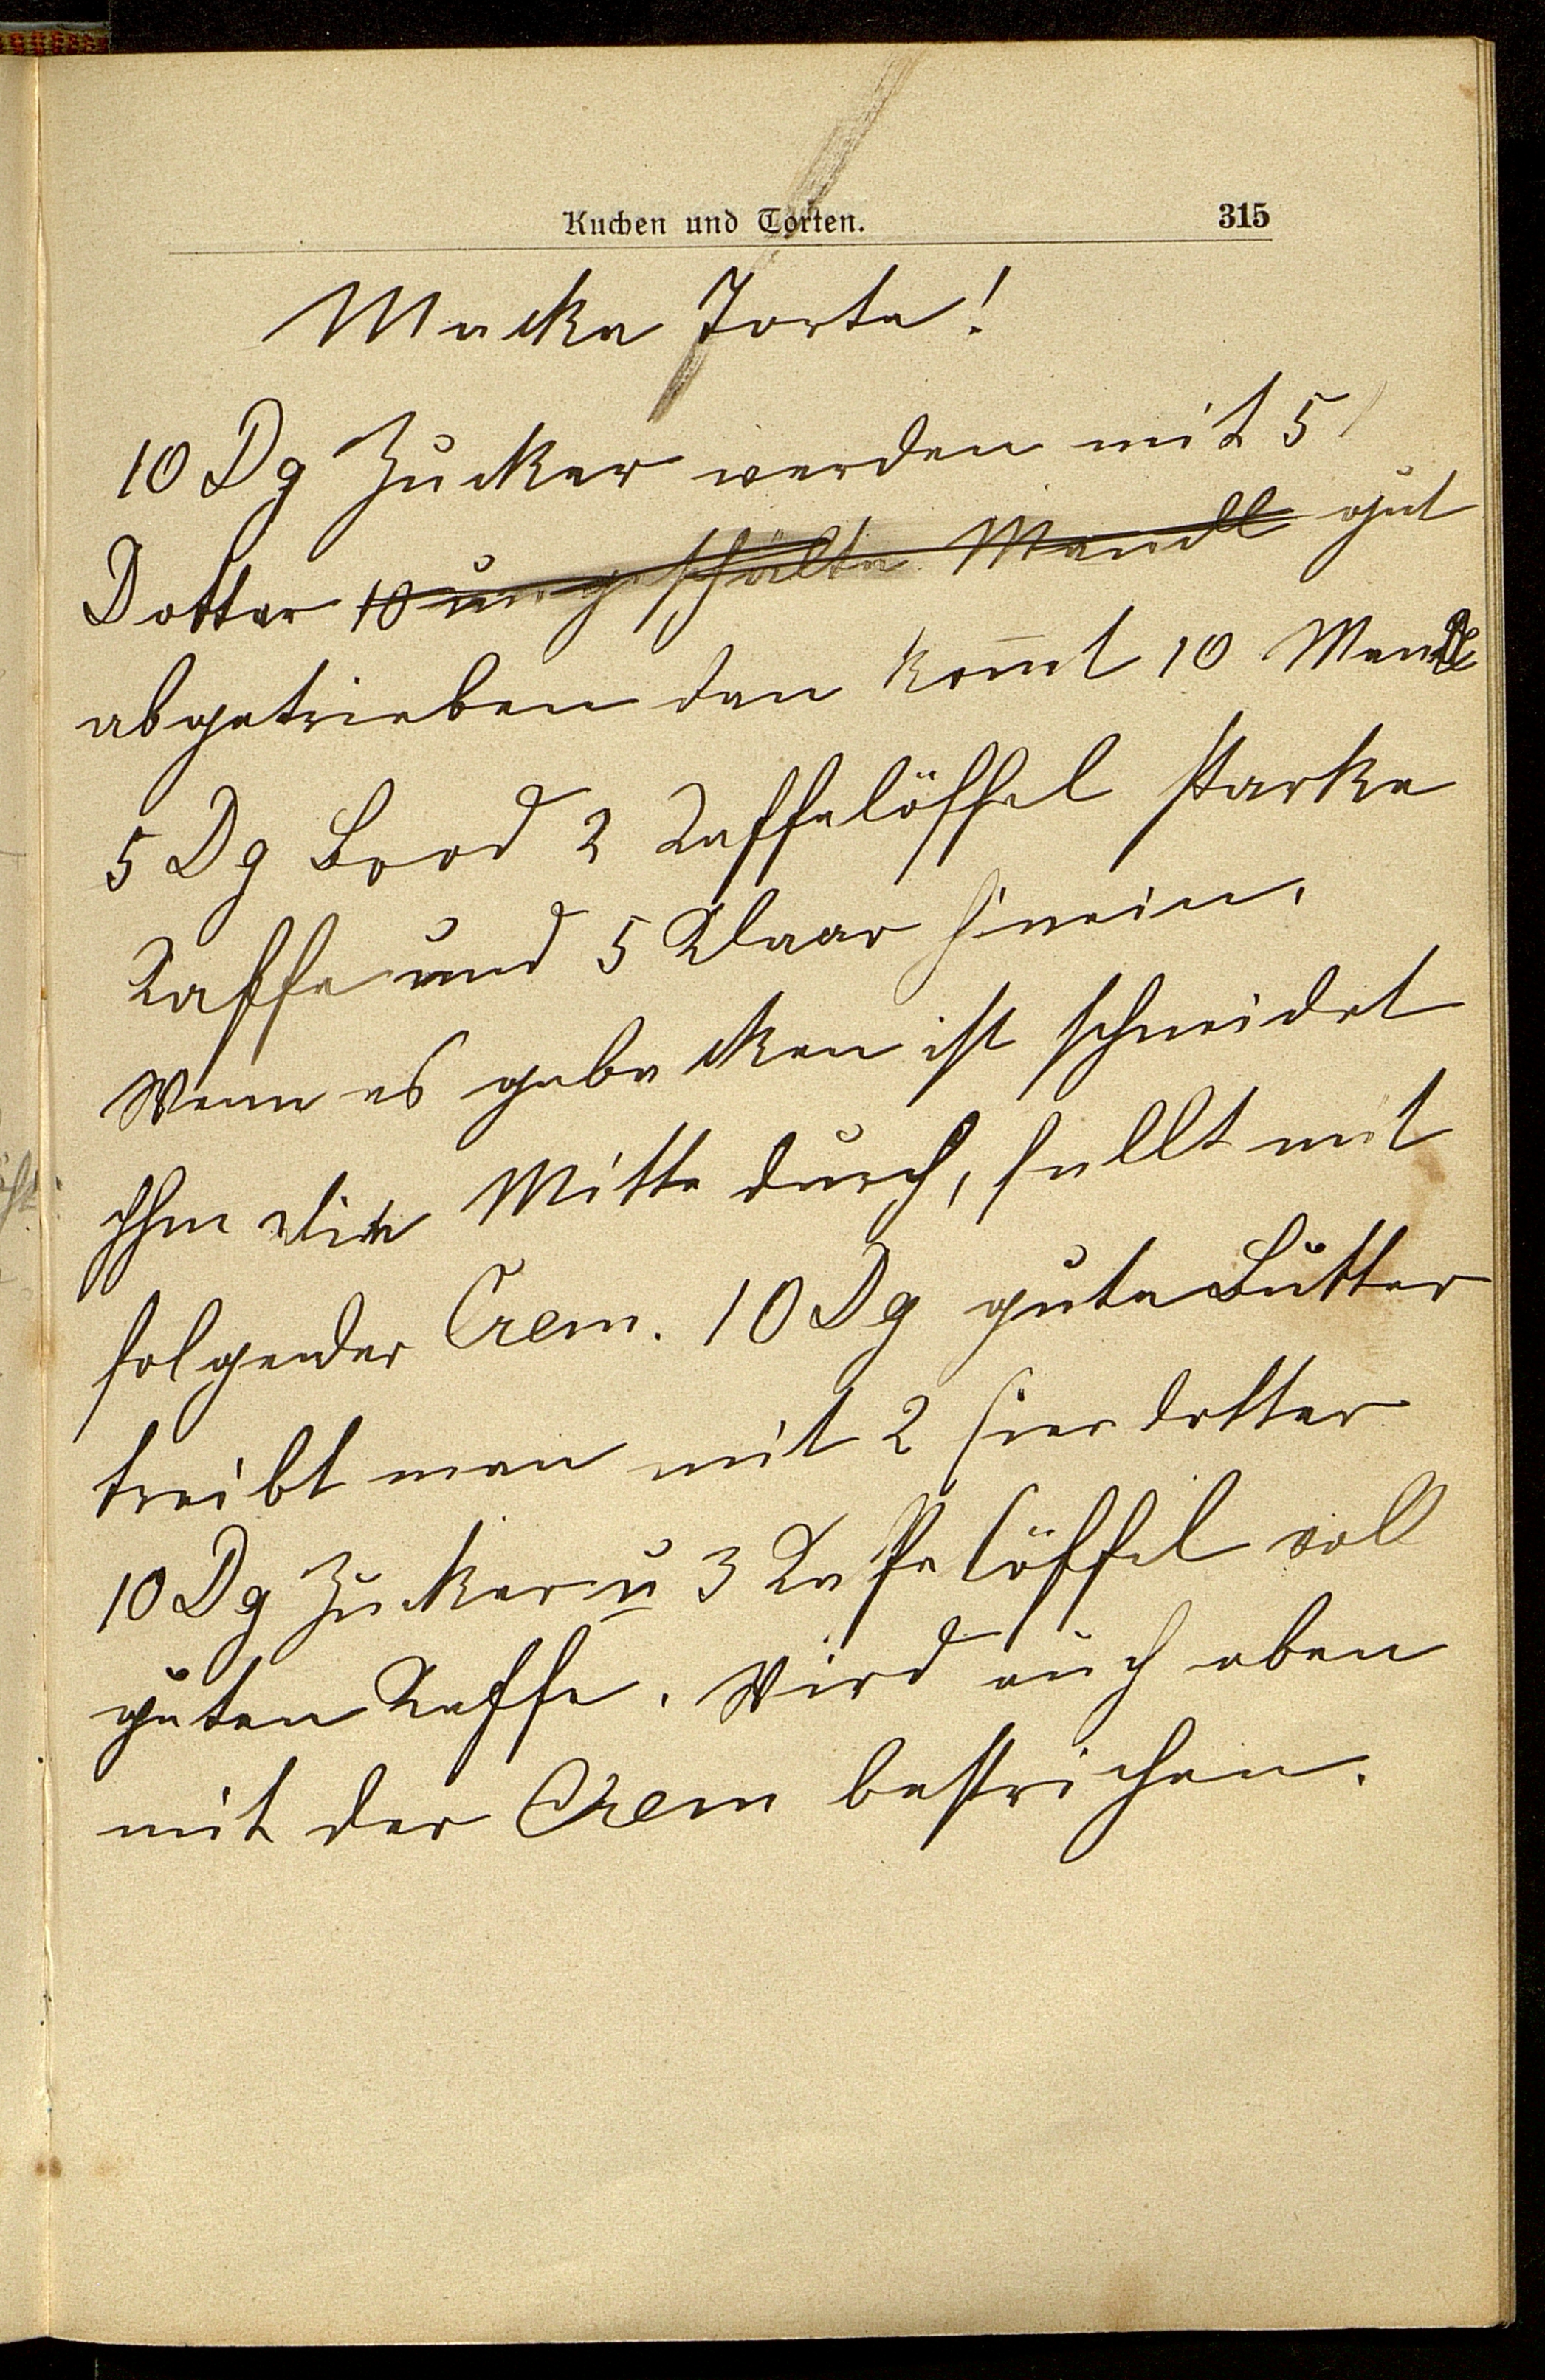 Kuchen und Torten. 315
Macka Torte!
10 Dg Zucker werden mit 5
Dotter 10 ungeschälte Mandl gut
abgetrieben dan kom̄t 10 Mandl
5 Dg Brod 2 Kaffelöffel starke
Kaffe und 5 Klaar hinein.
Wenn es gebacken ist schneidet
ihm die Mitte durch, fullt mit
folgender Crem. 10 Dg gute Butter
treibt man mit 2 Eierdotter
10 Dg Zucker u 3 Kaffelöffel voll
guten Kaffe. Wird auch oben
mit der Crem bestrichen.